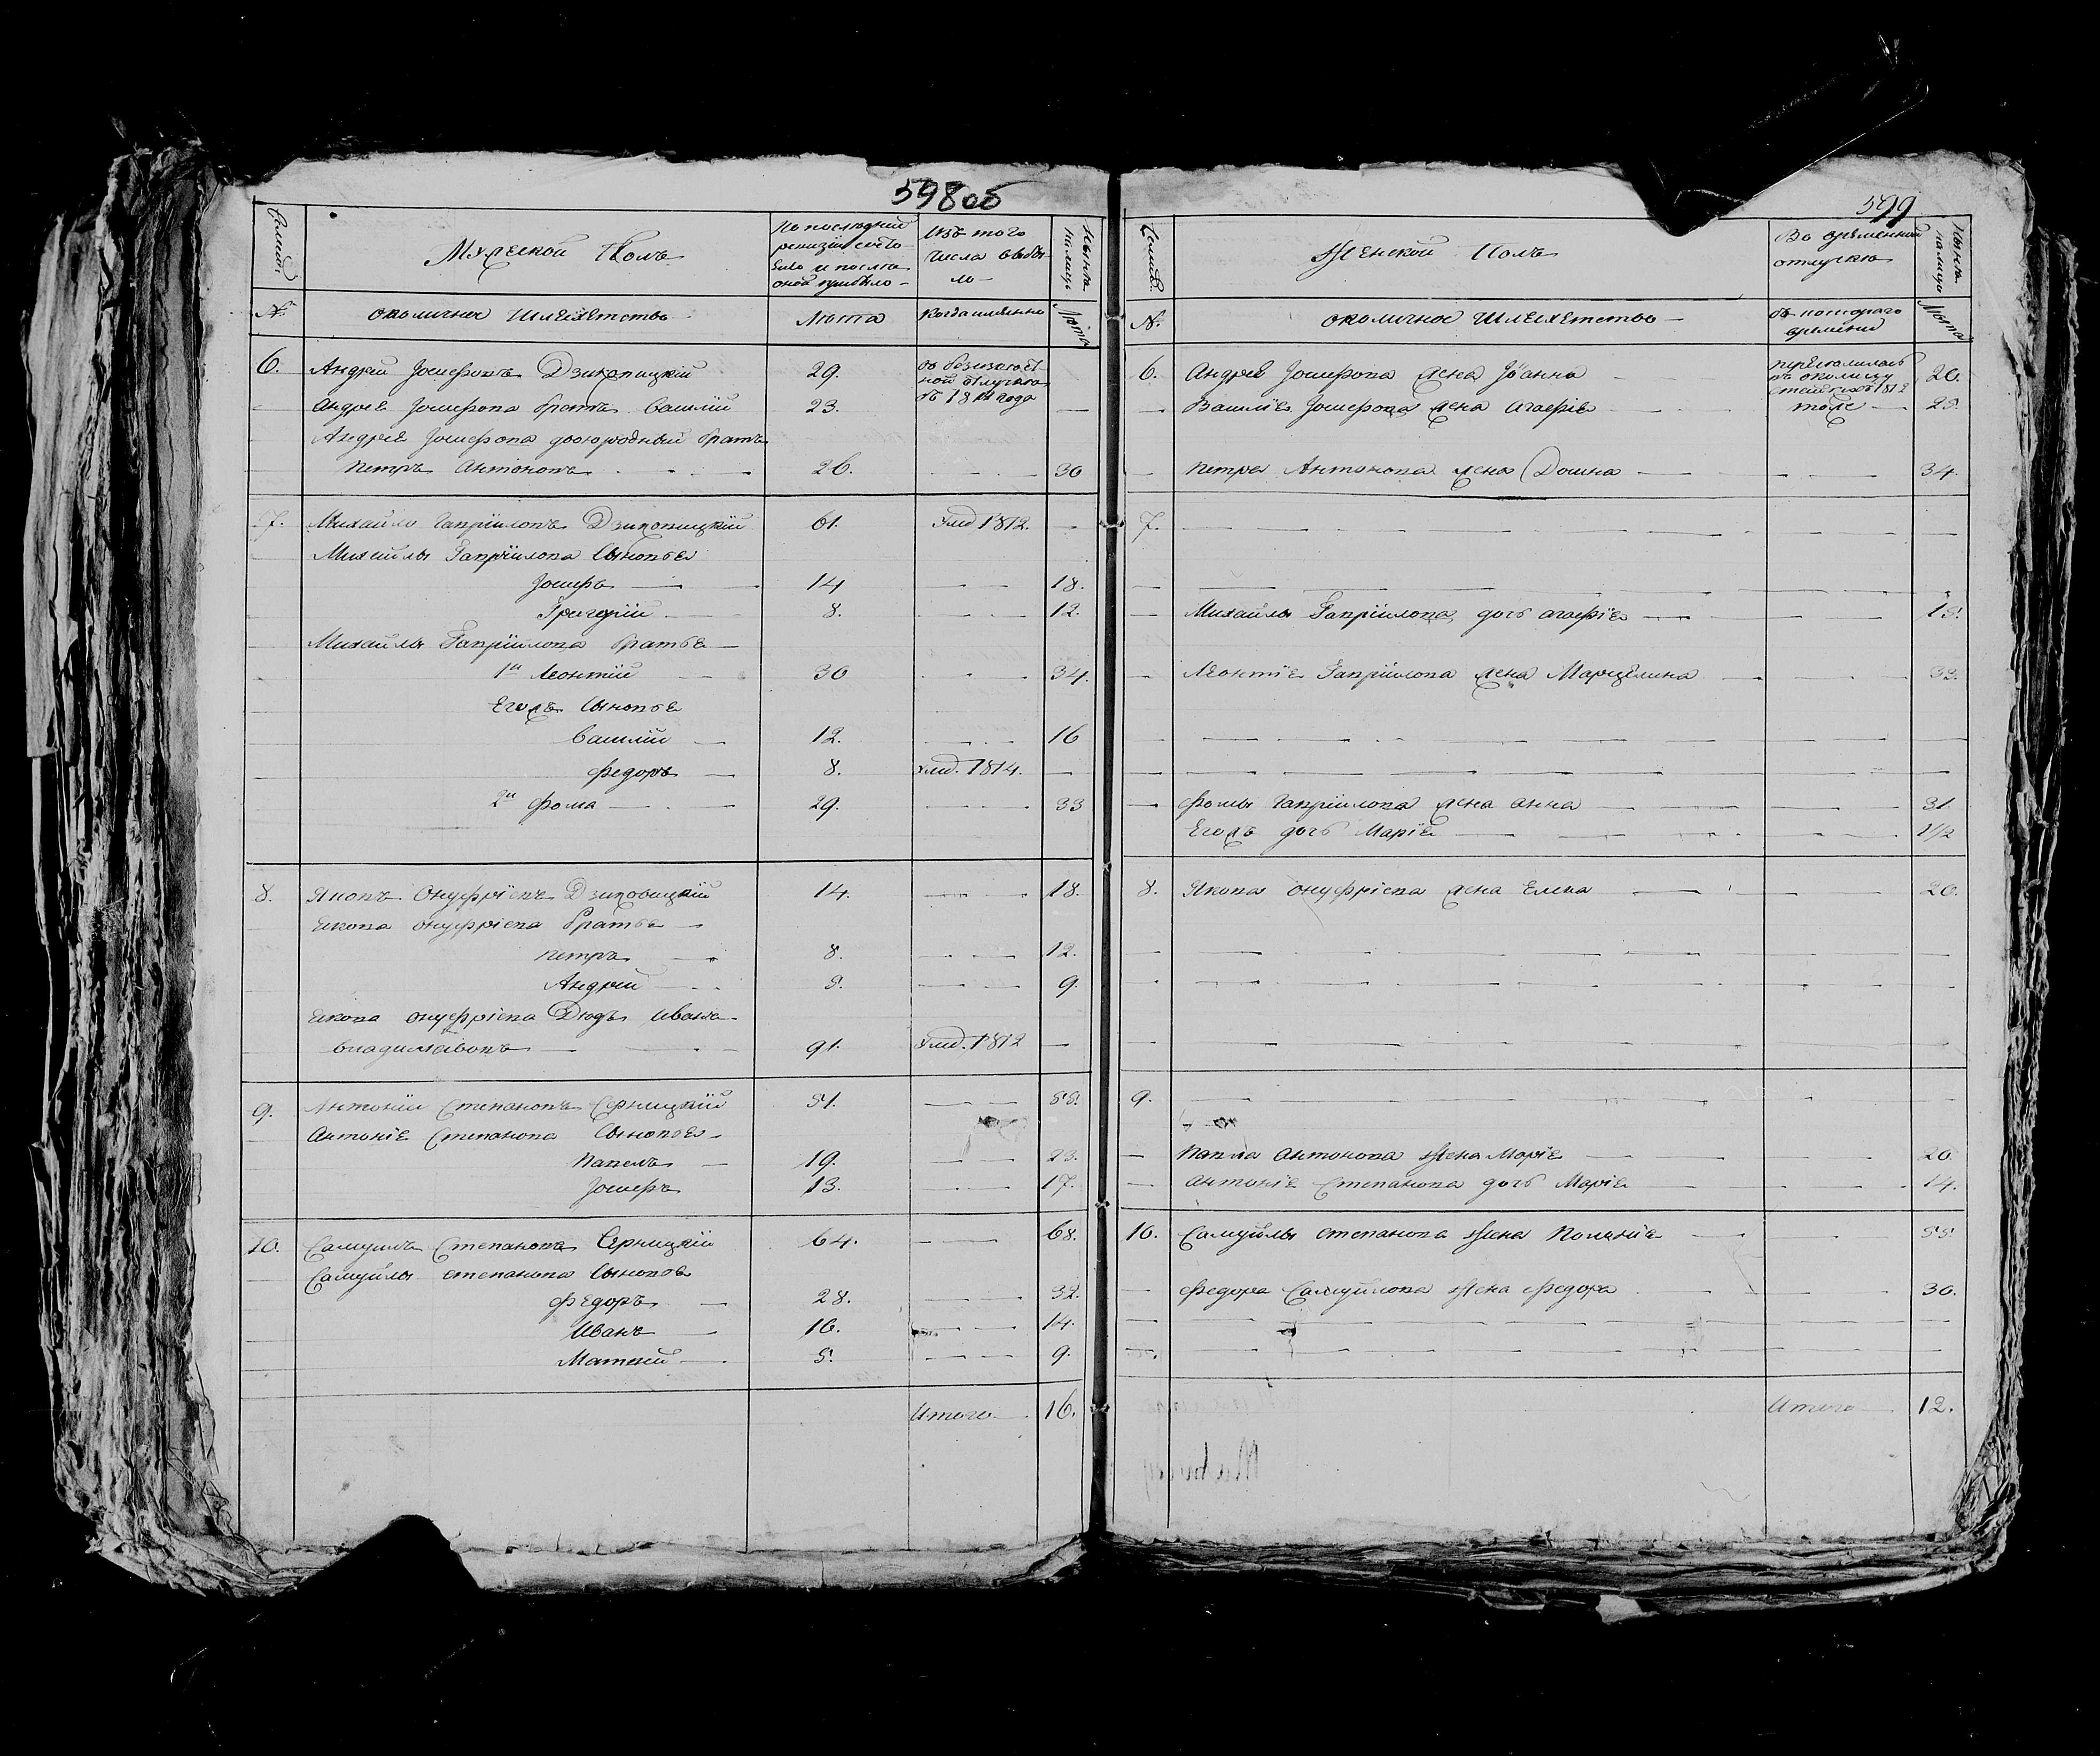 598 об
Мужеской Полъ
По последней
ревизіи состо
яло и после
оной прибыло
Изъ того
числа выбы
ло
Ныне
налицо
№
околичное Шляхетство
Лета
Когда именно
Лета
6. Андрей Іосифовъ Дзиковицкій 29. въ безизвест
ной отлучке
съ 18 года
Андрея Іосифова братъ Василій 23.
Андрея Іосифова двоюродный братъ
Петръ Антоновъ 26. 30
7. Михайло Гавриловъ Дзиковицкій 61. Умер 1812.
Михайлы Гаврилова Сыновья
Іосифъ 14 18.
Григорій 8. 12.
Михайлы Гаврилова братья
1й Леонтій 30 34.
Егожъ Сыновья
Василій 12. 16
Федоръ 8. Умер. 1814.
2й Фома 29. 33
8. Яковъ Онуфріевъ Дзиковицкій 14. 18.
Якова Онуфріева братья
Петръ 8. 12.
Андрей 5. 9.
Якова Онуфріева Дядъ Иванъ
91. Умер. 1812
9. Антоній Степановъ Серницкій 51. 55.
Антонія Степанова Сыновья
Павелъ 19. 23.
Іосифъ 13. 17.
10. Самуилъ Степановъ Серницкій 64. 68.
Самуйлы Степанова Сыновья
Федоръ 28. 32.
Иванъ 10. 14.
Матвей 5. 9.
Итого 16.
599
Женской Полъ
Во временной
отлучке
Ныне
налицо
№
околичное Шляхетство
съ котораго
времени
Лета
6. Андрея Іосифова жена Іоанна переселилась
въ околицу
1812 20.
Василія Іосифова жена Агафія тоже 25.
Петра Антонова жена Домна 34.
7.
Михайлы Гаврилова дочь Агафія 15.
Леонтія Гаврилова жена Марцелина 33.
Фомы Гаврилова жена Анна 31.
Егожъ дочь Марія 1 1/2
8. Якова Онуфріева жена Елена 20.
9.
Павла Антонова Жена Марія 20
Антонія Степанова дочь Марія 14.
10. Самуйлы Степанова Жена Поланія 55
Федора Самуйлова Жена Федора 30.
Итого 12.